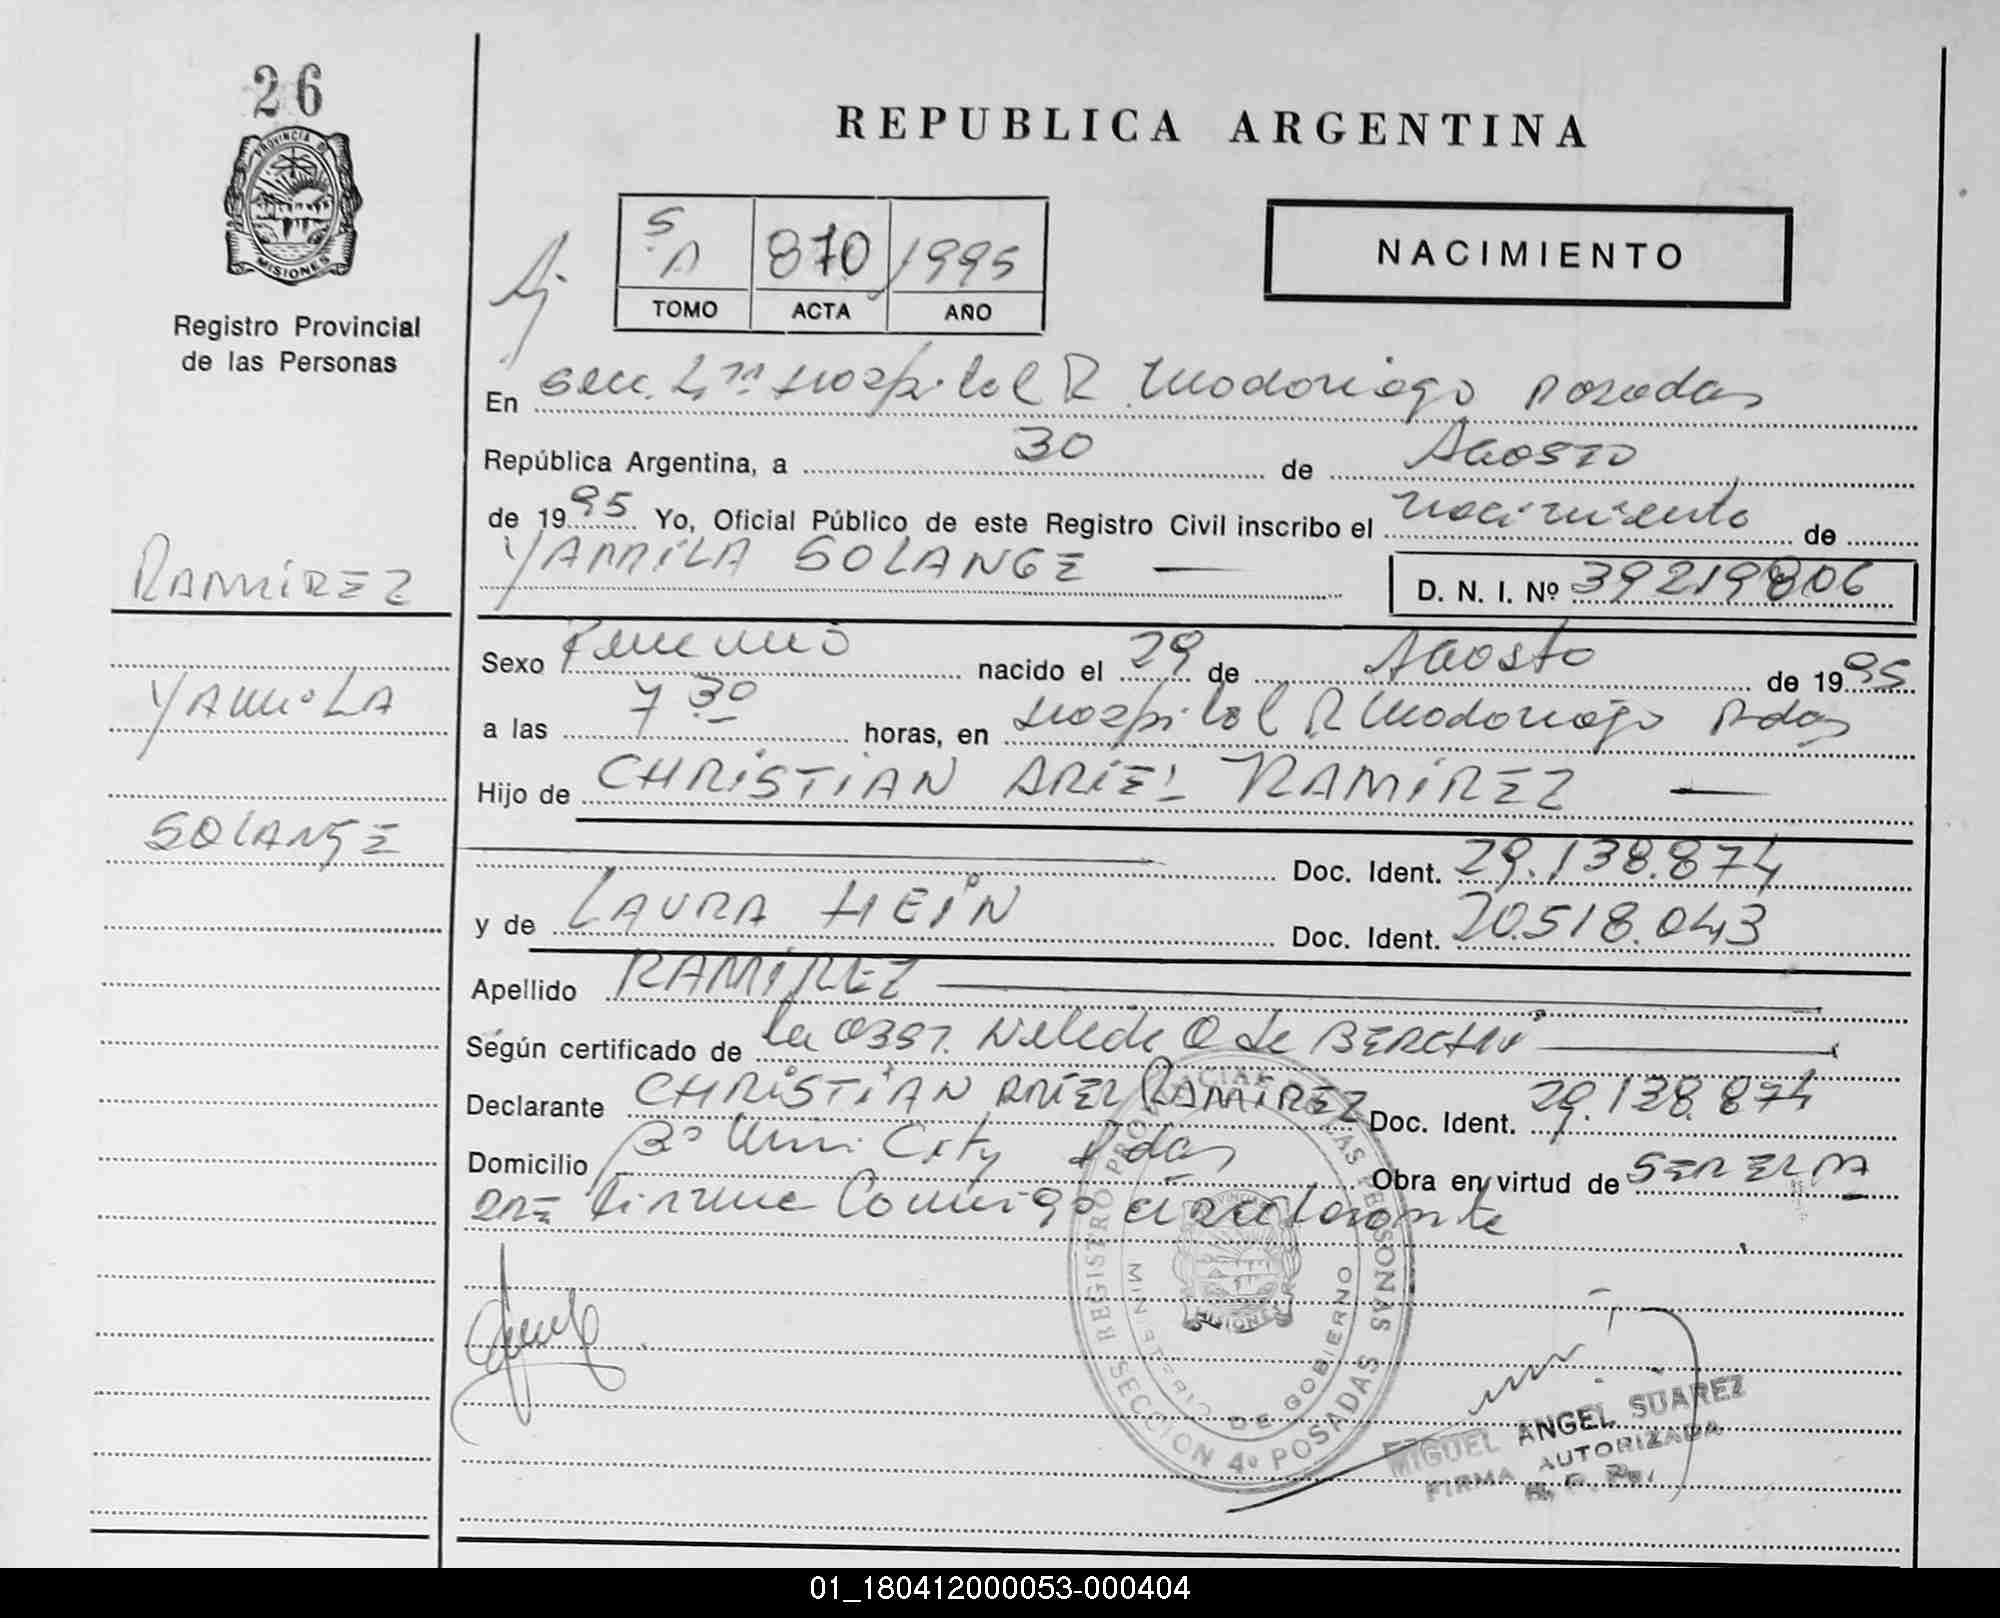 26
PROVINCIA DE
MISIONES
Registro Provincial
de las Personas
REPUBLICA ARGENTINA
5 A 870 1995
TOMO ACTA AÑO
NACIMIENTO
En Secc. 4ta Hospital R Madariaga Posadas
República Argentina, a 30 de Agosto
de 1995 Yo, Oficial Público de este Registro Civil inscribo el nacimiento de
YAMILA SOLANGE — D. N. I. Nº 39219806
RAMIREZ
YAMILA
SOLANGE
Sexo Femenino nacido el 29 de Agosto de 1995
a las 7 30 horas, en Hospital R Madariaga Pdas
Hijo de CHRISTIAN ARIEL RAMIREZ —
Doc. Ident. 29.138.874
y de LAURA HEIN Doc. Ident. 20.518.043
Apellido RAMIREZ
Según certificado de la OBST. Nélida O de
Declarante CHRISTIAN ARIEL RAMIREZ Doc. Ident. 29.138.874
Domicilio Bº Mini City Pdas Obra en virtud de SER EL PA
DRE Firma Conmigo el declarante
REGISTRO PROVINCIAL DE LAS PERSONAS
MINISTERIO DE GOBIERNO
MISIONES
SECCION 4º POSADAS
MIGUEL ANGEL SUAREZ
FIRMA AUTORIZADA
01_180412000053-000404